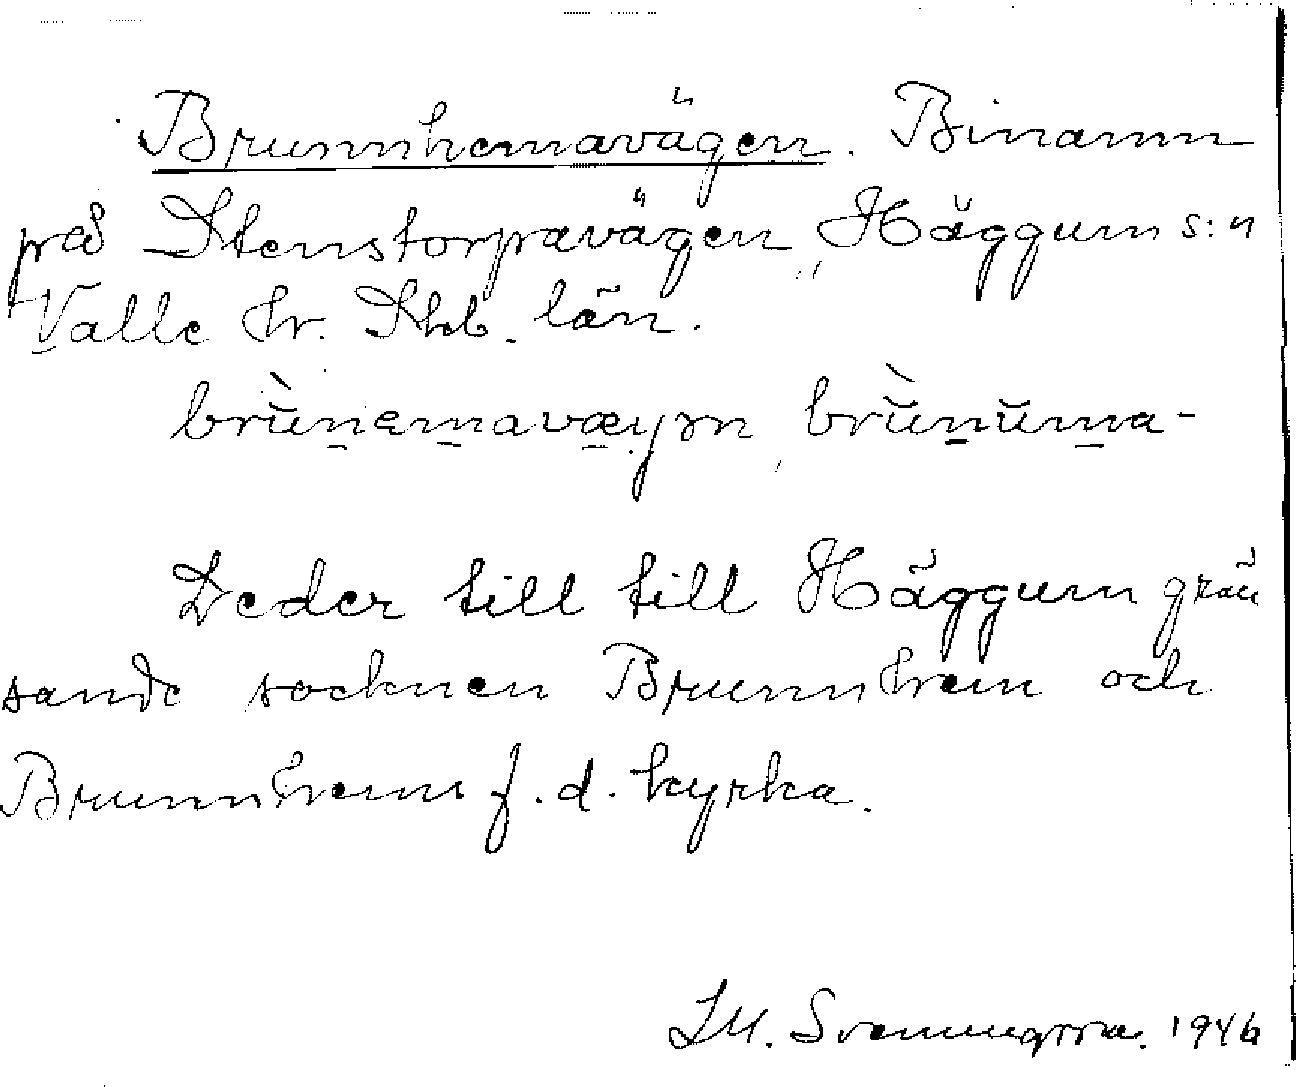 Brunnhemavägen. Binamn
på Stenstorpavägen, Häggum s:n
Valle hr. Skb. län.
brùnemavæyrn, brùnuma-
Leder till till Häggum grän
sande socknen Brunnhem och
Brunnhems f.d. kyrka.
1946